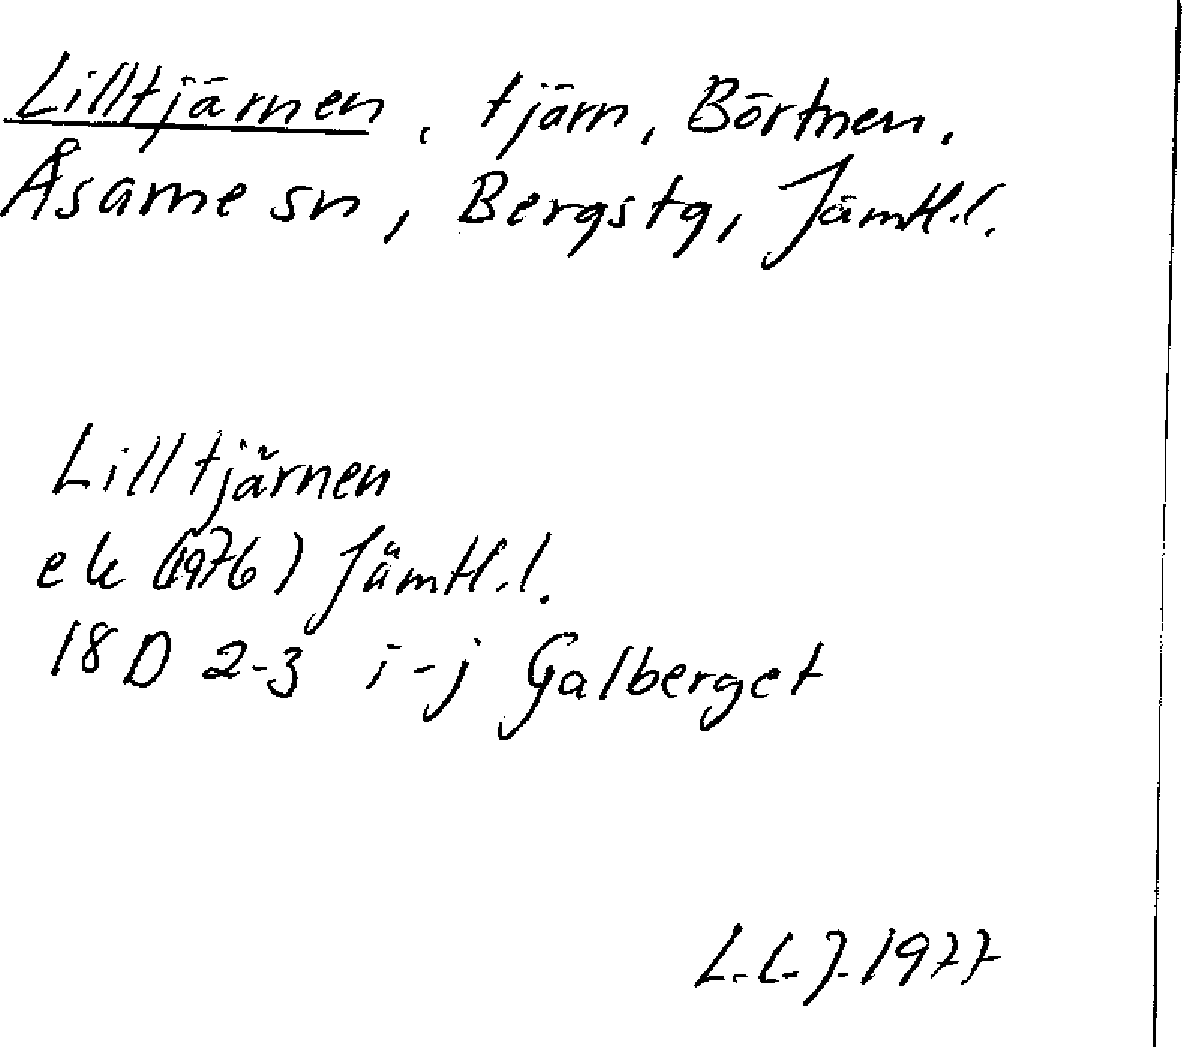 Lilltjärnen, tjärn, Börtnen,
Åsarne sn, Bergs tg, Jämtl.l.
Lilltjärnen
ek (1976) Jämtl.l.
18D 2-3 i-j Galberget
L.L.J. 1977